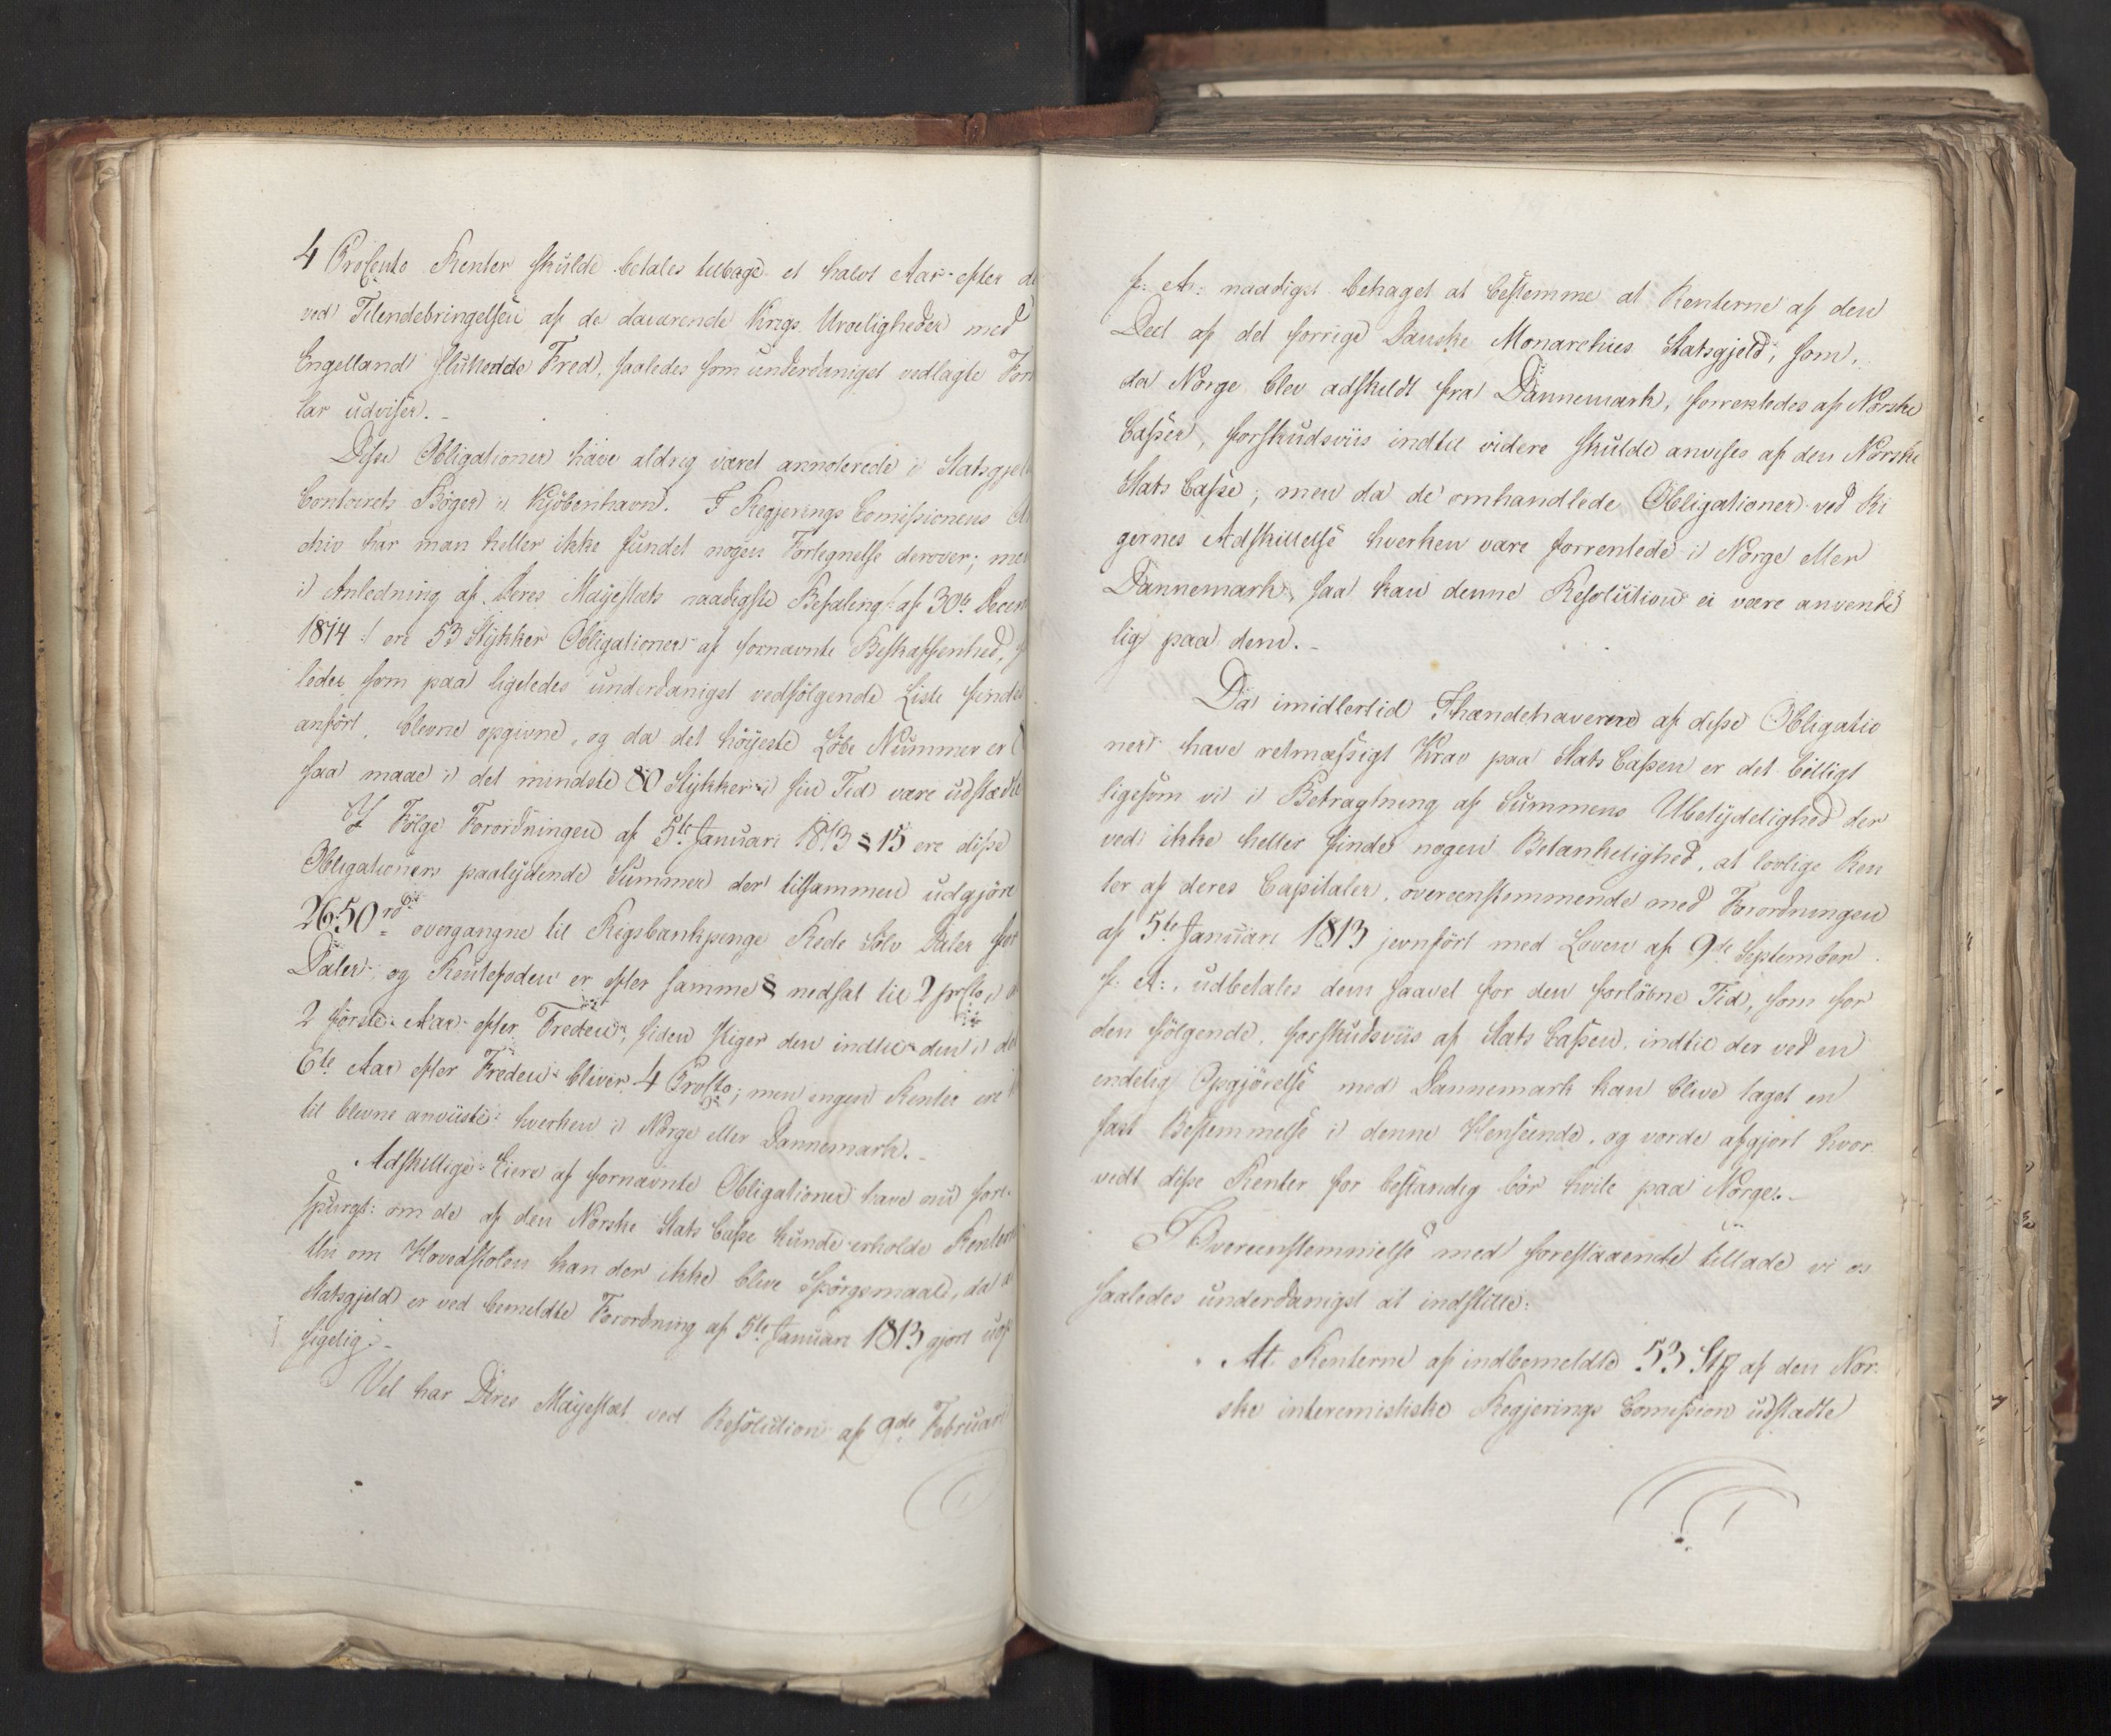 4 ProCento Renter skulde betales tilbage et halvt Aar efter d
ved Tilendebringelsen af de daværende Krigs Uroeligheder med
Engelland sluttende Fred, saaledes som underdanigst vedlagte For
lar udviser.
Disse Obligationer have aldrig været annoterede i Statsgjel
Contoirets Böger i Kjöbenhavn. I Regjerings Comissionens A
chiv har man heller ikke fundet nogen Fortegnelse derover; me
i Anledning af Deres Mayestæts naadigste Befaling af 30te Decem
1814 ere 53 Stykker Obligationer af fornævnte Beskaffenhed,
ledes som paa ligeledes underdanigst vedfölgende Liste findes
anfört, blevne opgivne, og da det höyeste Löbe Nummer er
saa maae i det mindste 80 Stykker i sin Tid være udstædte
I Fölge Forordningen af 5te Januari 1813 § 15 ere disse
Obligationers paalydende Summer der tilsammen udgjöre
2650 rd overgangne til Rigsbankpenge Rede Sölv Daler for
Daler, og Rentefoden er efter samme § nedsat til 2 prCto i
2 förste Aar efter Freden, siden stiger den indtil den i de
6te Aar efter Freden bliver 4 ProCto; men ingen Renter ere
til blevne anviiste hverken i Norge eller Dannemark.
Adskillige Eiere af fornævnte Obligationer have nu fore
spurgt: om de af den Norske Stats Casse kunde erholde Renter
thi om Hovedstolen kan der ikke blive Spörgsmaal, da
Statsgjeld er ved bemeldte Forordning af 5te Januari 1813 gjort uop
sigelig.
Vel har Deres Mayestæt ved Resolution af 9de Februari
f: A: naadigst behaget at bestemme at Renterne af den
Deel af det forrige Danske Monarchies Statsgjeld, som,
da Norge blev adskildt fra Dannemark, forrentedes af Norske
Casser, forskudsviis indtil videre skulde anvises af den Norske
Stats Casse; men da de omhandlede Obligationer ved Ri
gernes Adskillelse hverken vare forrentede i Norge eller
Dannemark, saa kan denne Resolution ei være anvende
lig paa dem.
Da imidlertid Ihændehaverene af disse Obligatio
ner have retmæssigt Krav paa Stats Cassen er det billigt
ligesom vi i Betragtning af Summens Ubetydelighed der
ved ikke heller finde nogen Betænkelighed, at lovlige Ren
ter af deres Capitaler, overeenstemmende med Forordningen
af 5te Januari 1813 jevnfört med Loven af 9de September
f: A:, udbetales dem saavel for den forlöbne Tid, som for
den fölgende, forskudsviis af Stats Cassen, indtil der ved en
endelig Opgjörelse med Dannemark kan blive taget en
fast Bestemmelse i denne Henseende, og vorde afgjort hvor
vidt disse Renter for bestandig bör hvile paa Norge.
I Overeenstemmelse med forestaaende tillade vi os
saaledes underdanigst at indstille:
At Renterne af indbemeldte 53 Stk af den Nor
ske interemistiske Regjerings Comission udstædte